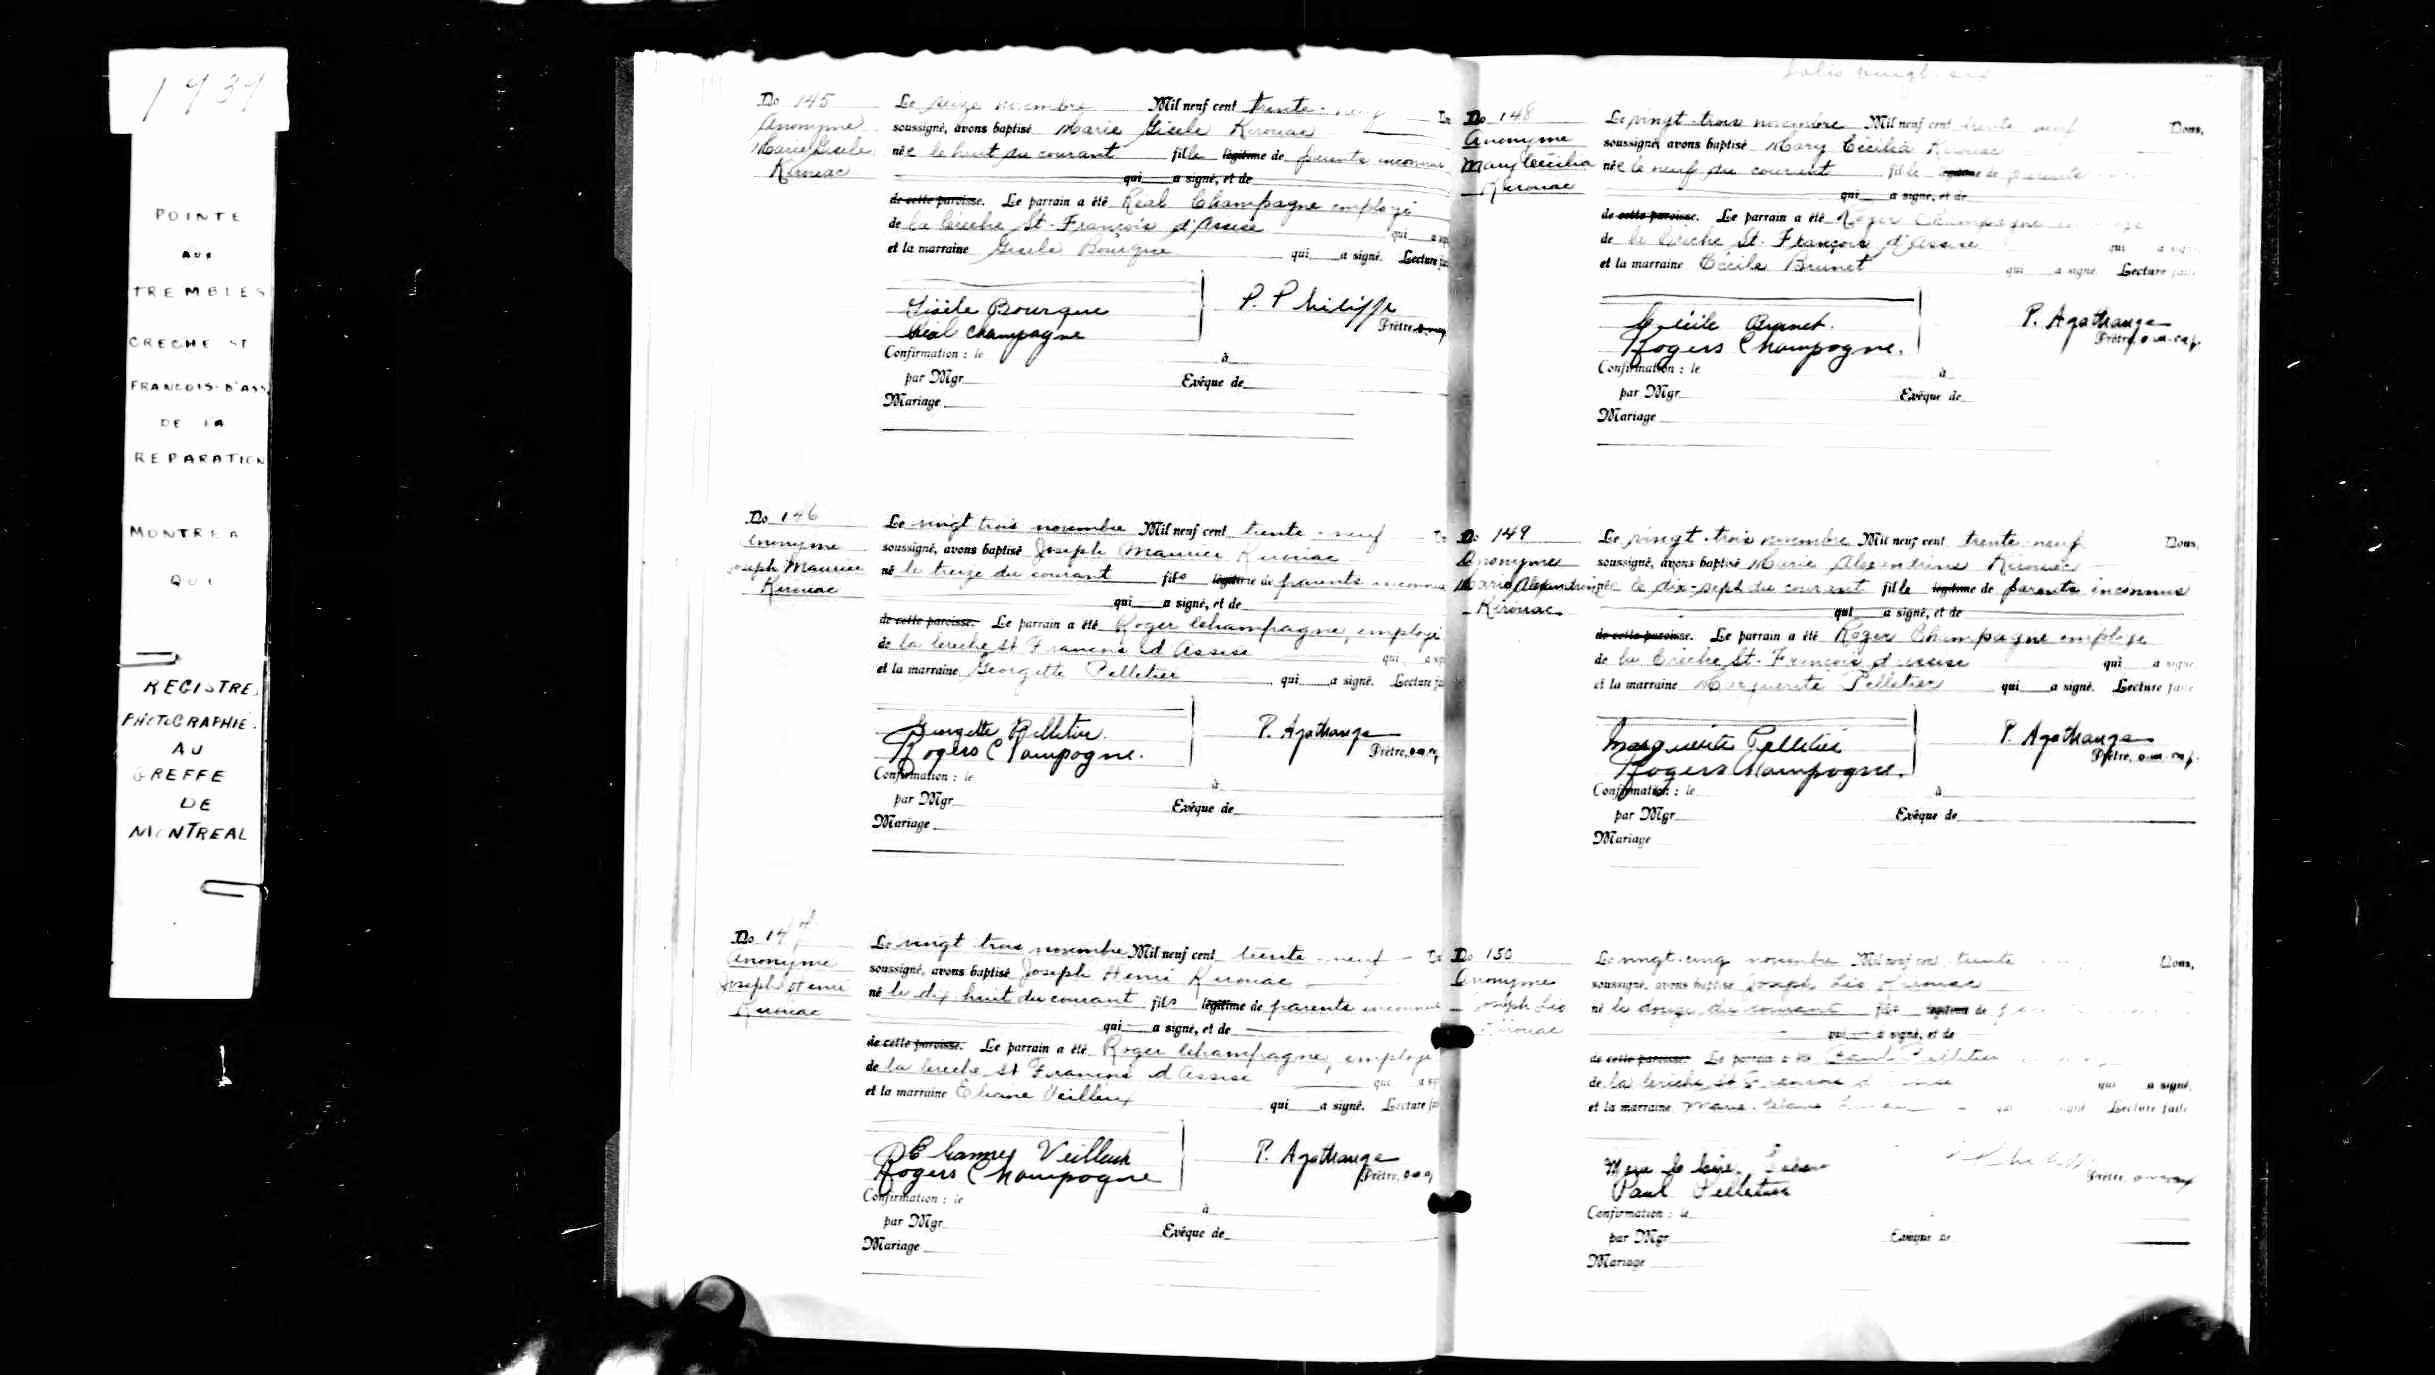 1939
POINTE
AUX
TREMBLES
CRECHE ST
FRANCOIS-D'ASS
DE LA
REPARATION
MONTREA
QUE
REGISTRE
PHOTOGRAPHIE
AU
GREFFE
DE
MONTREAL
No 145
Anonyme
Marie Gisele
Kirouac
Le seize novembre Mil neuf cent trente-neuf
soussigné, avons baptisé Marie Gisele Kirouac
née le huit du courant fille légitime de parents inconnus
qui a signé, et de
de cette paroisse. Le parrain a été Réal Champagne employé
de la Crèche St-François d'Assise qui
et la marraine Gisele Bourque qui a signé. Lecture
Gisèle Bourque
Réal Champagne
P. Philippe
Prêtre
Confirmation : le à
par Mgr Evêque de
Mariage
No 146
Anonyme
Joseph Maurice
Kirouac
Le vingt trois novembre Mil neuf cent trente-neuf
soussigné, avons baptisé Joseph Maurice Kirouac
né le treize du courant fils légitime de parents inconnus
qui a signé, et de
de cette paroisse. Le parrain a été Roger Champagne, employé
de la Creche St Francois d Assise qui
et la marraine Georgette Pelletier qui a signé. Lecture
Georgette Pelletier
Rogers Champagne.
P. Agathange
Prêtre,
Confirmation : le à
par Mgr Evêque de
Mariage
No 147
Anonyme
Joseph Henri
Kirouac
Le vingt trois novembre Mil neuf cent trente-neuf
soussigné, avons baptisé Joseph Henri Kirouac
né le dix huit du courant fils légitime de parents inconnus
qui a signé, et de
de cette paroisse. Le parrain a été Roger Champagne, employé
de la Creche St Francois d Assise qui
et la marraine Eliane Veilleux qui a signé. Lecture
Eliane Veilleux
Rogers Champagne
P. Agathange
Prêtre,
Confirmation : le à
par Mgr Evêque de
Mariage
folio vingt-six
No 148
Anonyme
Mary Cecilia
Kirouac
Le vingt-trois novembre Mil neuf cent trente neuf Nous,
soussigné, avons baptisé Mary Cecilia Kirouac
née le neuf du courant fille légitime de parents
qui a signé, et de
de cette paroisse. Le parrain a été Roger Champagne
de la Crèche St-François d'Assise qui a signé
et la marraine Cécile Brunet qui a signé. Lecture faite
Cécile Brunet.
Rogers Champagne.
P. Agathange
Prêtre, o.m.cap.
Confirmation : le à
par Mgr Evêque de
Mariage
No 149
Anonyme
Marie Alexandrine
Kirouac
Le vingt-trois novembre Mil neuf cent trente-neuf Nous,
soussigné, avons baptisé Marie Alexandrine Kirouac
née le dix-sept du courant fille légitime de parents inconnus
qui a signé, et de
de cette paroisse. Le parrain a été Roger Champagne employé
de la Crèche St-François d'Assise qui a signé
et la marraine Marguerite Pelletier qui a signé. Lecture faite
Marguerite Pelletier
Rogers Champagne.
P. Agathange
Prêtre, o.m.cap.
Confirmation : le à
par Mgr Evêque de
Mariage
No 150
Anonyme
Joseph Leo
Kirouac
Le vingt-cinq novembre Mil neuf cent trente Nous,
soussigné, avons baptisé Joseph Léo Kirouac
né le douze du courant fils légitime de
qui a signé, et de
de cette paroisse. Le parrain a été Paul Pelletier
de la Creche St Francois d qui a signé.
et la marraine Marie qui signé Lecture faite
Paul Pelletier
Prêtre,
Confirmation : le
par Mgr Evêque de
Mariage